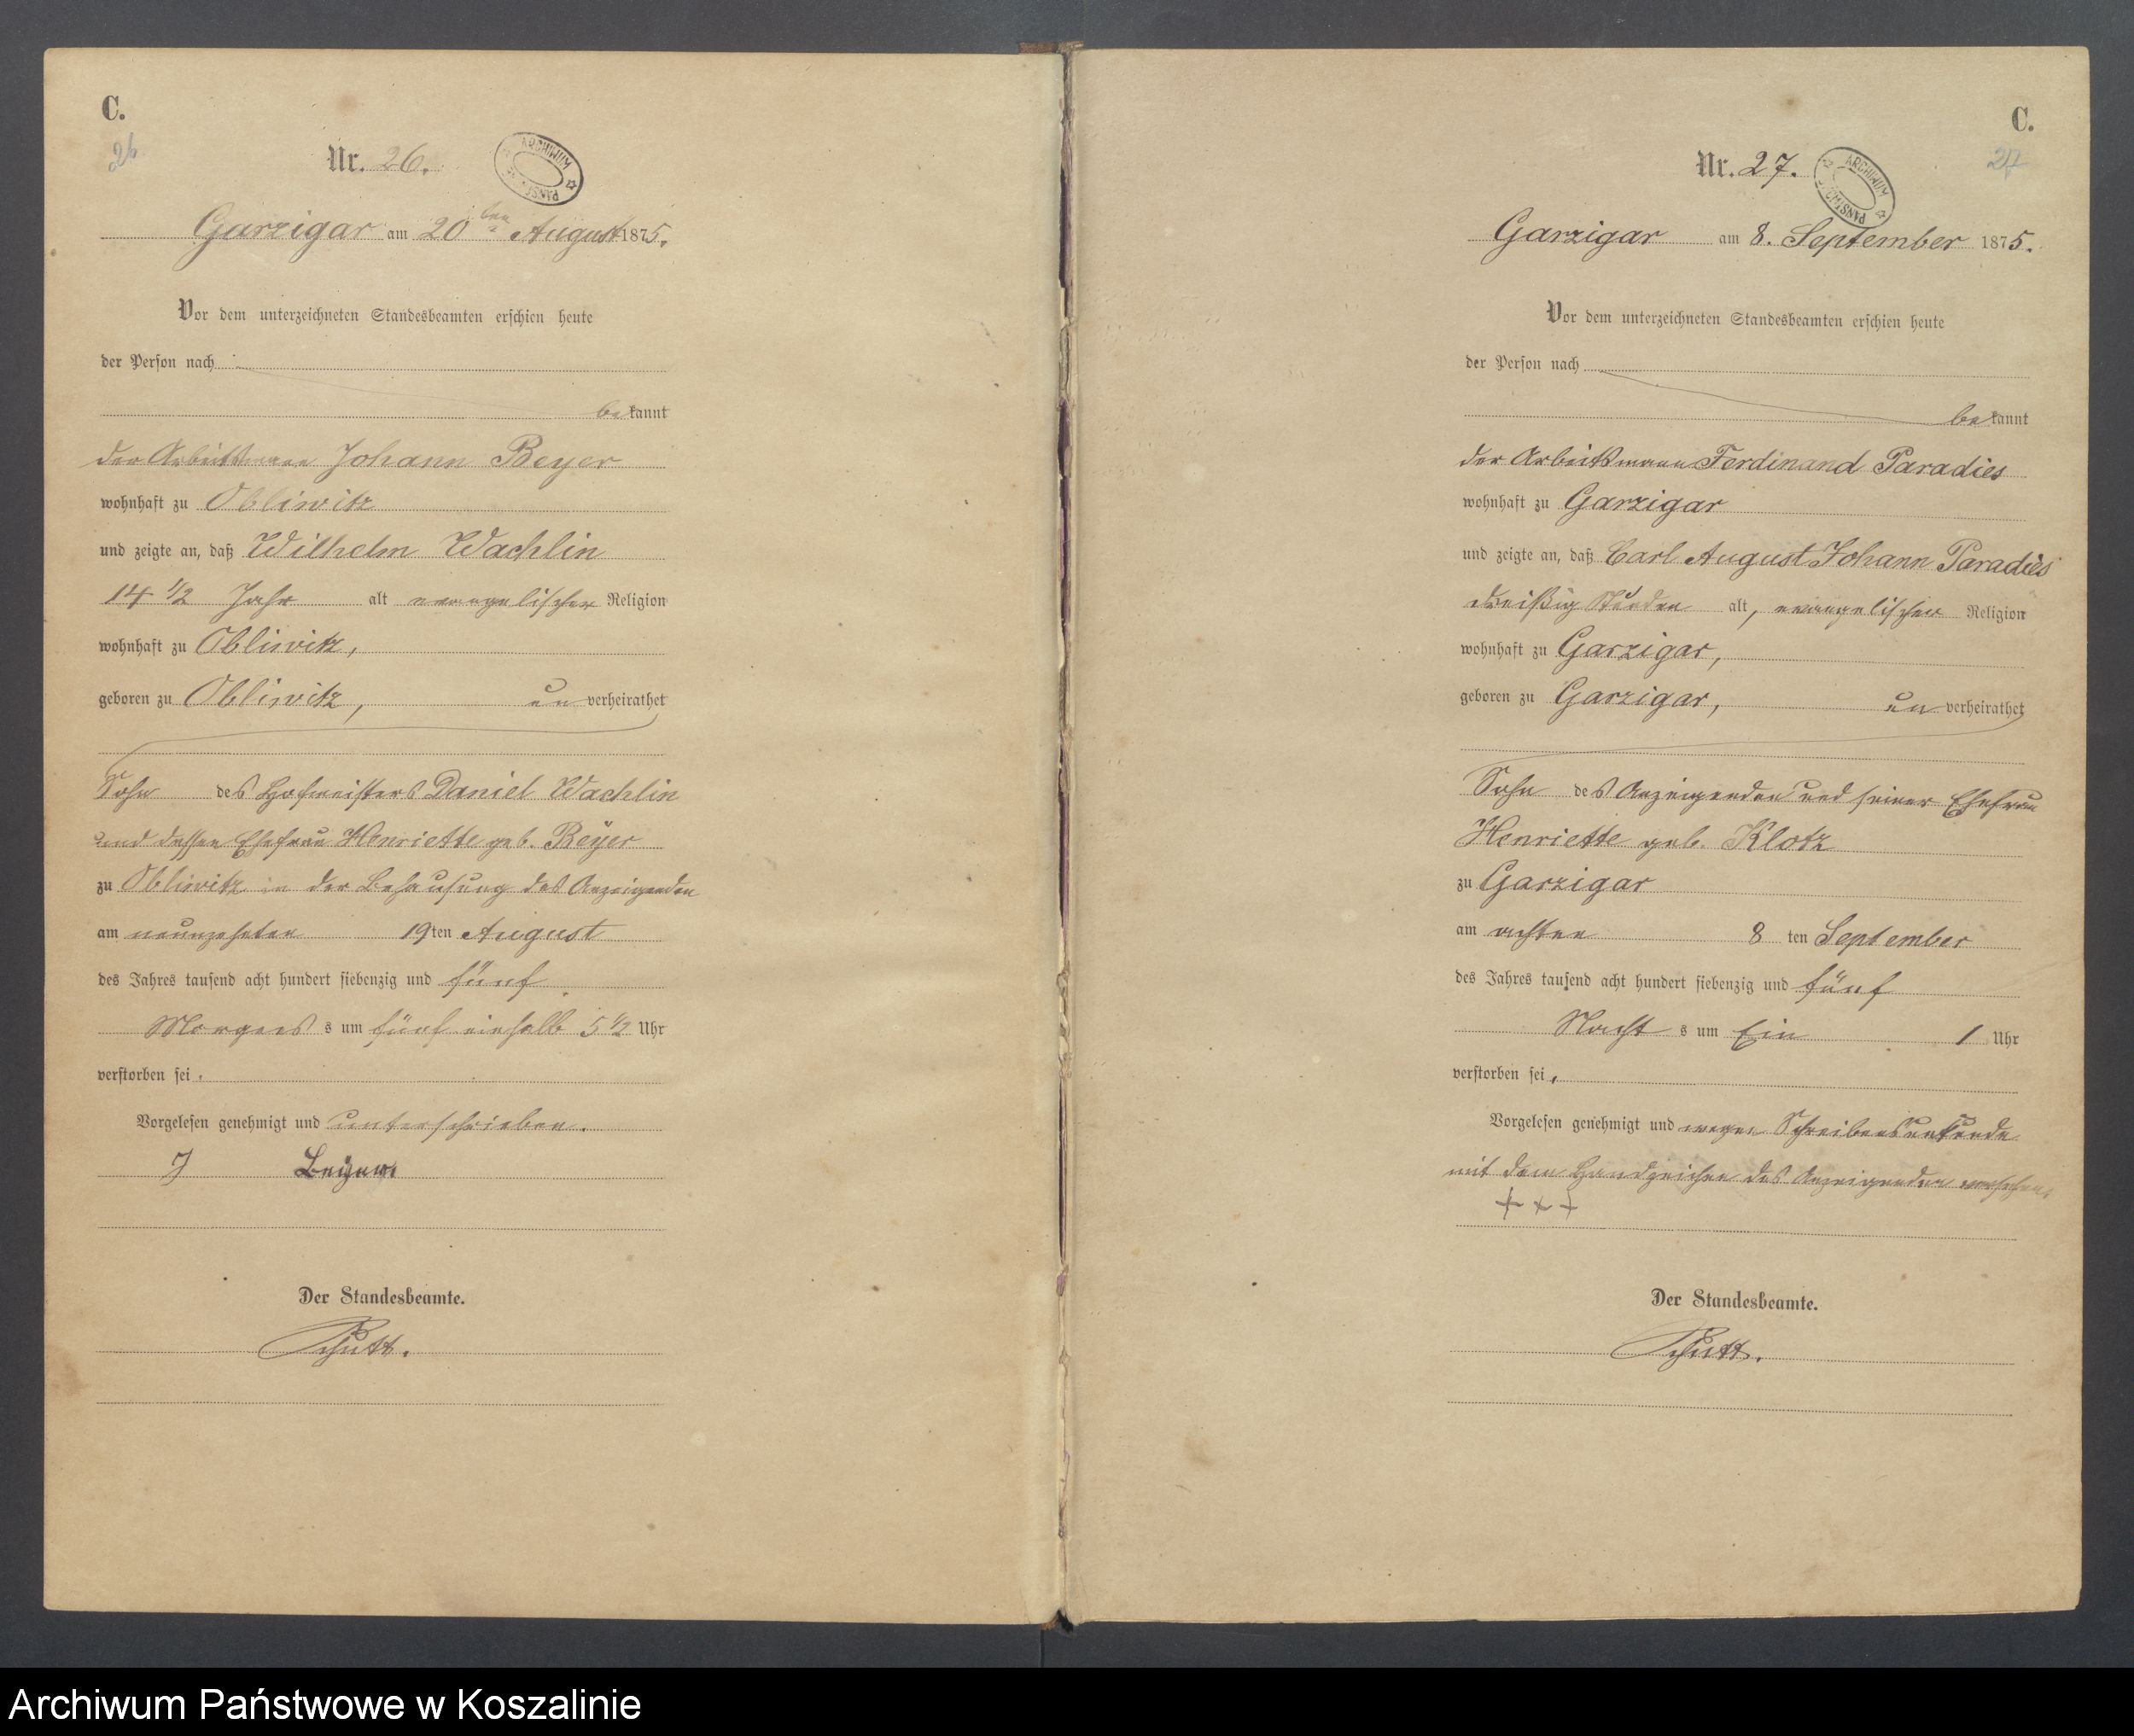 C.
26
Nr. 26.
ARCHIWUM PAŃSTW
Garzigar am 20ten August 1875.
Vor dem unterzeichneten Standesbeamten erschien heute
der Person nach
bekannt
der Arbeitsmann Johann Beyer
wohnhaft zu Obliwitz
und zeigte an, daß Wilhelm Wachlin
14 1/2 Jahr alt evangelischer Religion
wohnhaft zu Obliwitz,
geboren zu Obliwitz, unverheirathet
Sohn des Hofmeisters Daniel Wachlin
und dessen Ehefrau Henriette geb. Beyer
zu Obliwitz in der Behausung des Anzeigenden
am neunzehnten 19ten August
des Jahres tausend acht hundert siebenzig und fünf
Morgens s um fünf einhalb 5 1/2 Uhr
verstorben sei.
Vorgelesen genehmigt und unterschrieben.
J Beyer.
Der Standesbeamte.
C.
27
Nr. 27.
ARCHIWUM PAŃSTW
Garzigar am 8. September 1875.
Vor dem unterzeichneten Standesbeamten erschien heute
der Person nach
bekannt
der Arbeitsmann Ferdinand Paradies
wohnhaft zu Garzigar
und zeigte an, daß Carl August Johann Paradies
dreißig Stunden alt, evangelischer Religion
wohnhaft zu Garzigar,
geboren zu Garzigar, unverheirathet
Sohn des Anzeigenden und seiner Ehefrau
Henriette geb. Klotz
zu Garzigar
am achten 8 ten September
des Jahres tausend acht hundert siebenzig und fünf
Nacht s um Ein 1 Uhr
verstorben sei.
Vorgelesen genehmigt und wegen Schreibensunkunde
mit dem Handzeichen des Anzeigenden versehen.
+ + +
Der Standesbeamte.
Archiwum Państwowe w Koszalinie